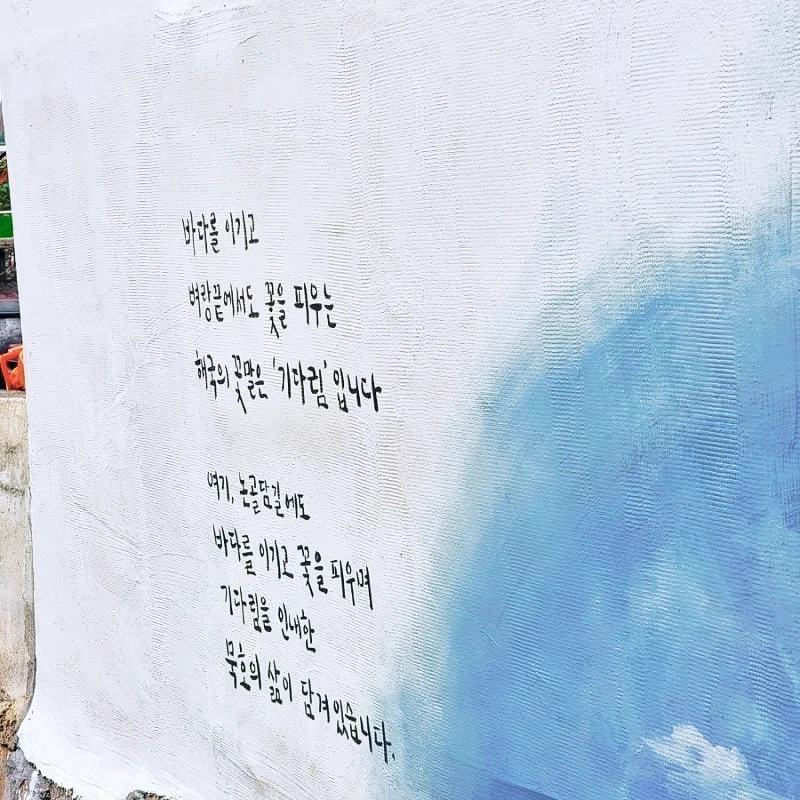 바다를 이기고
벼랑끝에서도 꽃을 피우는
해국의 꽃말은 '기다림' 입니다
여기, 논골담길에도
바다를 이기고 꽃을 피우며
기다림을 인내한
묵호의 삶이 담겨있습니다.